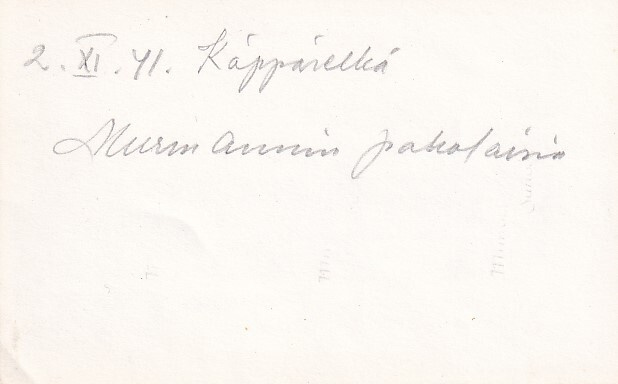 2. XI. 41. Käppäselkä
Murmannin pakolaisia